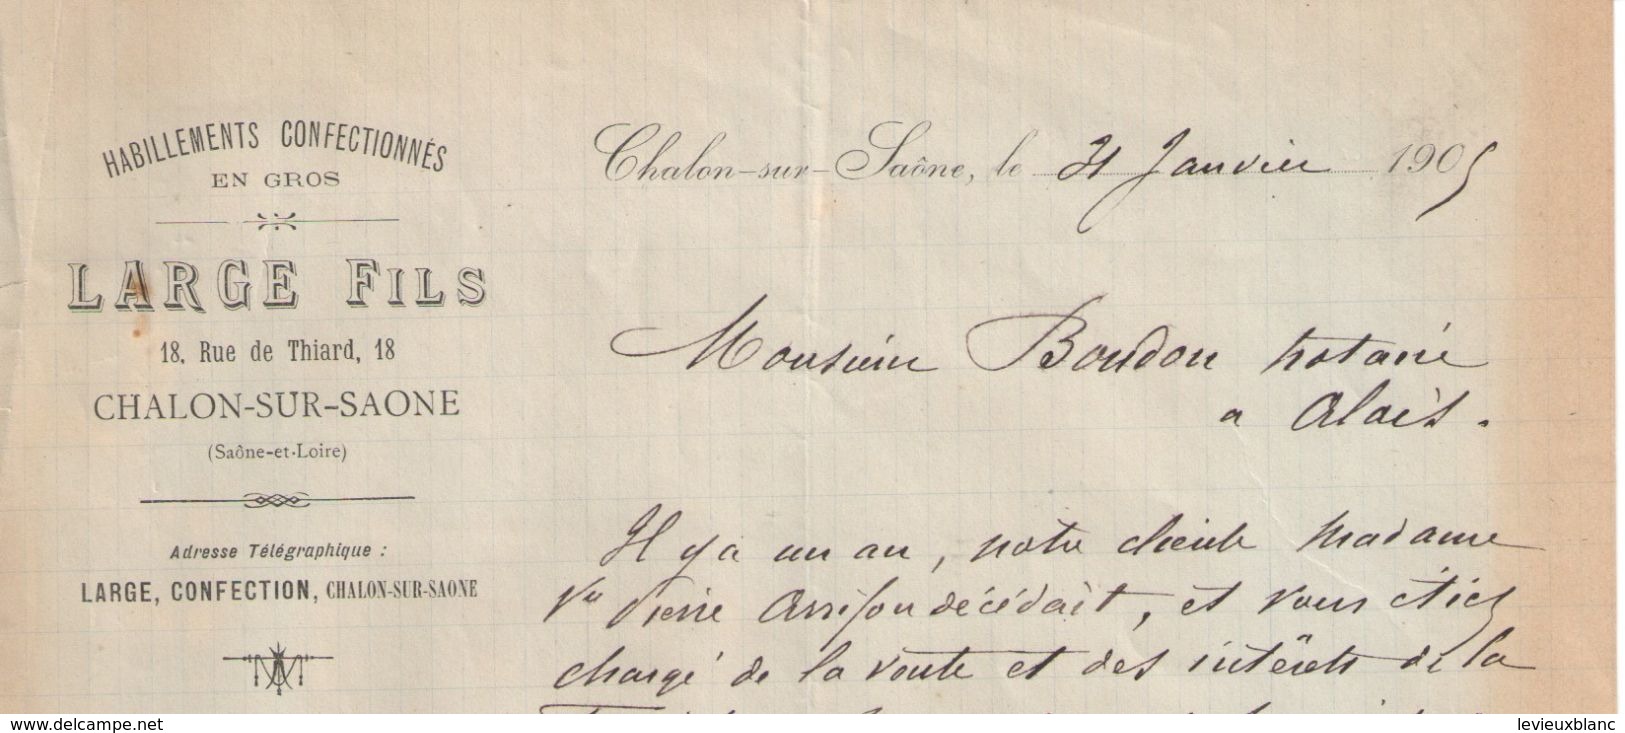 HABILLEMENTS CONFECTIONNÉS
EN GROS
LARGE FILS
18, Rue de Thiard, 18
CHALON-SUR-SAONE
(Saône-et-Loire)
Adresse Télégraphique :
LARGE, CONFECTION, CHALON-SUR-SAONE
Chalon-sur-Saône, le 31 Janvier 1905
Monsieur Boudon notaire
a Alais.
Il y a un an, notre cliente Madame
Vve Pierre décédait, et vous étiez
chargé de la vente et des intérêts de la
www.delcampe.net
levieuxblanc